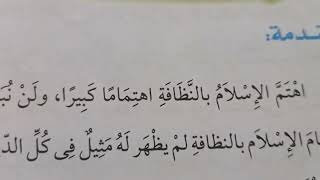 اهْتَمَّ الإِسْلَامُ بالنَّظَافَةِ اهتِمَامًا كَبِيرًا، ولَنْ
الإِسْلَامِ بالنظافةِ لمْ يظْهَر لَهُ مَثِيلٌ فِى كُلِّ